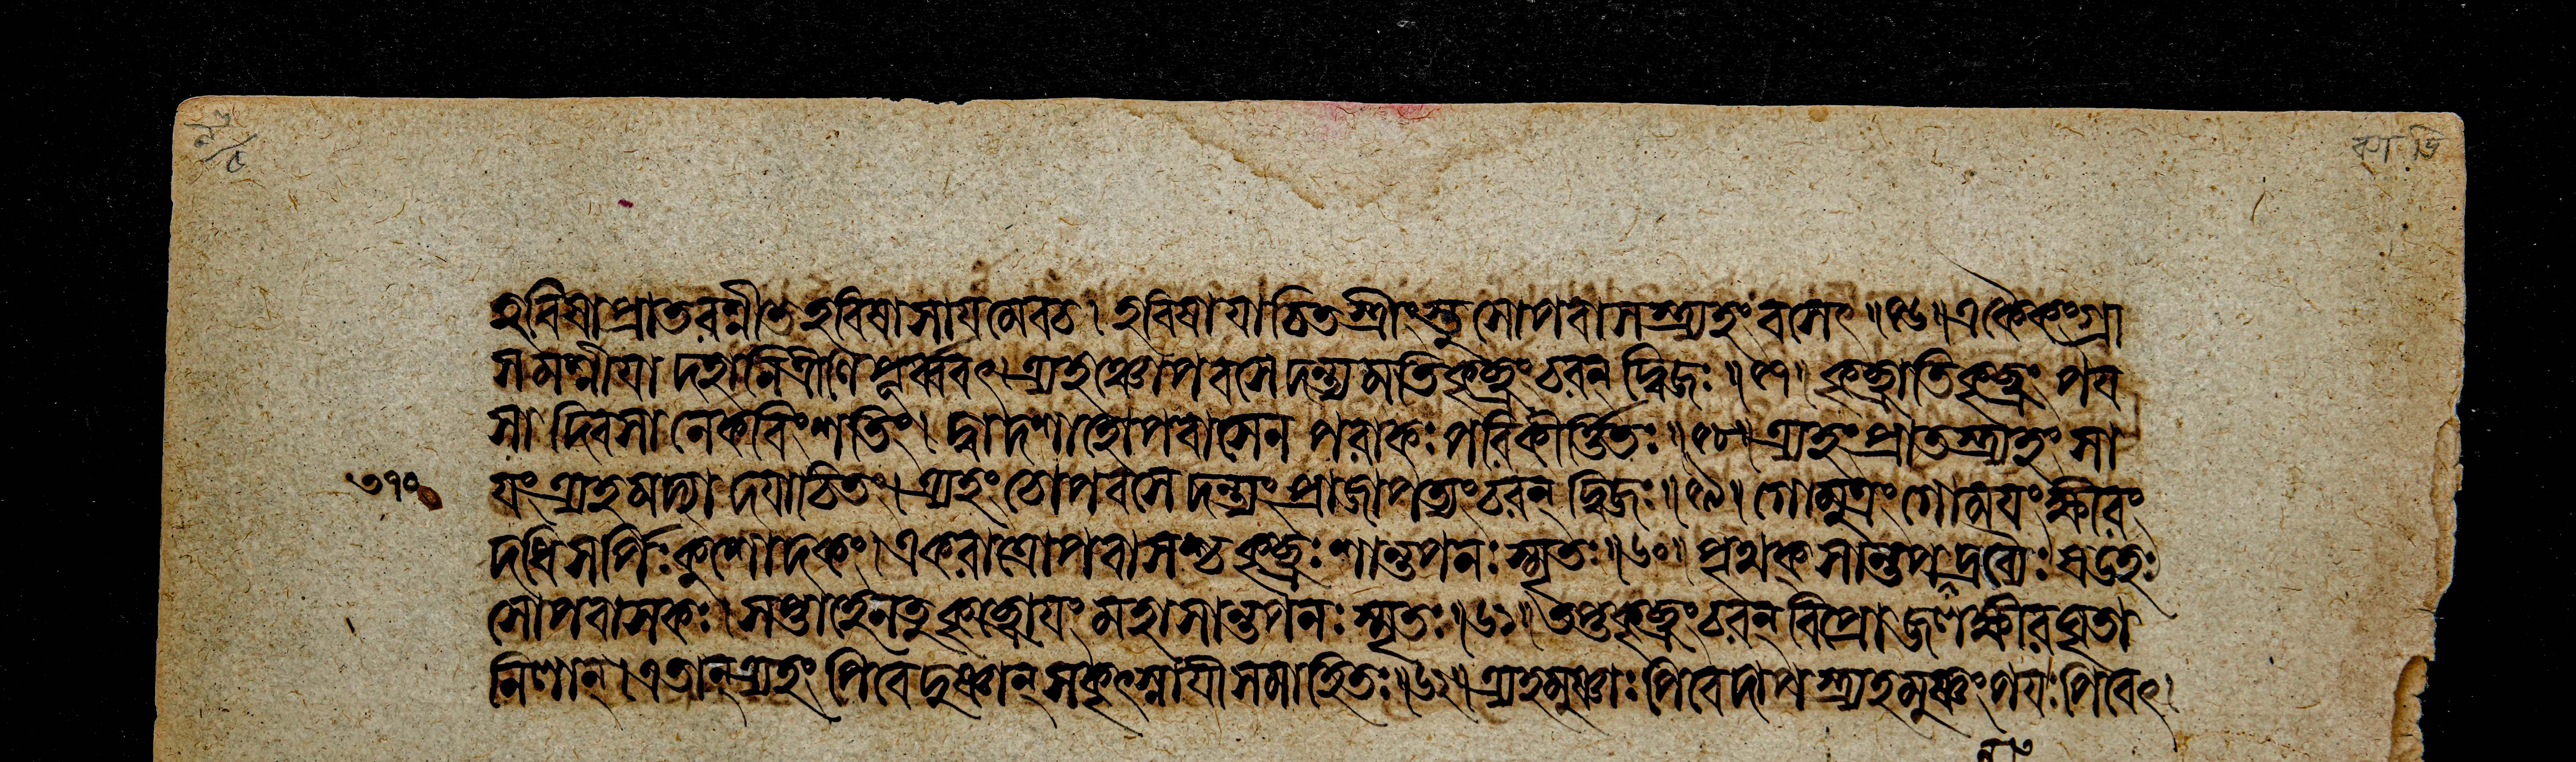 হবিষা প্রাতরশ্নীত হবিষা সাযমেবচ। হবিষাযাচিতস্ত্রীংস্তু সোপবাসস্ত্র্যহং বসেৎ॥৫৬॥একৈকংগ্রা
সমশ্নীযা দহানিত্রীণি পূর্ব্ববৎ। ত্র্যহঞ্চোপবসে দন্ত্যমতিকৃচ্ছ্রং চরন্ দ্বিজঃ॥৫৭॥কৃচ্ছ্রাতিকৃচ্ছ্রং পয
সা দিবসা নেকবিংশতিং। দ্বাদশাহোপবাসেন পরাকঃ পরিকীর্ত্তিতঃ॥৫৮॥ত্র্যহং প্রাতস্ত্র্যহং সা
৩৭০
যং ত্র্যহমদ্যা দযাচিতং। ত্র্যহং চোপবসে দন্ত্যং প্রাজাপত্যং চরন্ দ্বিজঃ॥৫৯॥গোমূত্রং গোমযং ক্ষীরং
দধি সর্পিঃ কুশোদকং। একরাত্রোপবাসশ্চ কৃচ্ছ্রঃ শান্তপনঃ স্মৃতঃ॥৬০॥পৃথক্ সান্তপ দ্রব্যৈঃ ষডহঃ
সোপবাসকঃ। সপ্তাহেনতু কৃচ্ছ্রোযং মহাসান্তপনঃ স্মৃতঃ॥৬১॥তপ্তকৃচ্ছ্রং চরন্ বিপ্রো জলক্ষীরঘৃতা
নিলান্। এতান্ ত্র্যহং পিবে দুষ্ণান্ সকৃৎস্নাযী সমাহিতঃ॥৬২॥ত্র্যহমুষ্ণাঃ পিবেদাপ স্ত্র্যহমুষ্ণং পযঃ পিবেৎ।